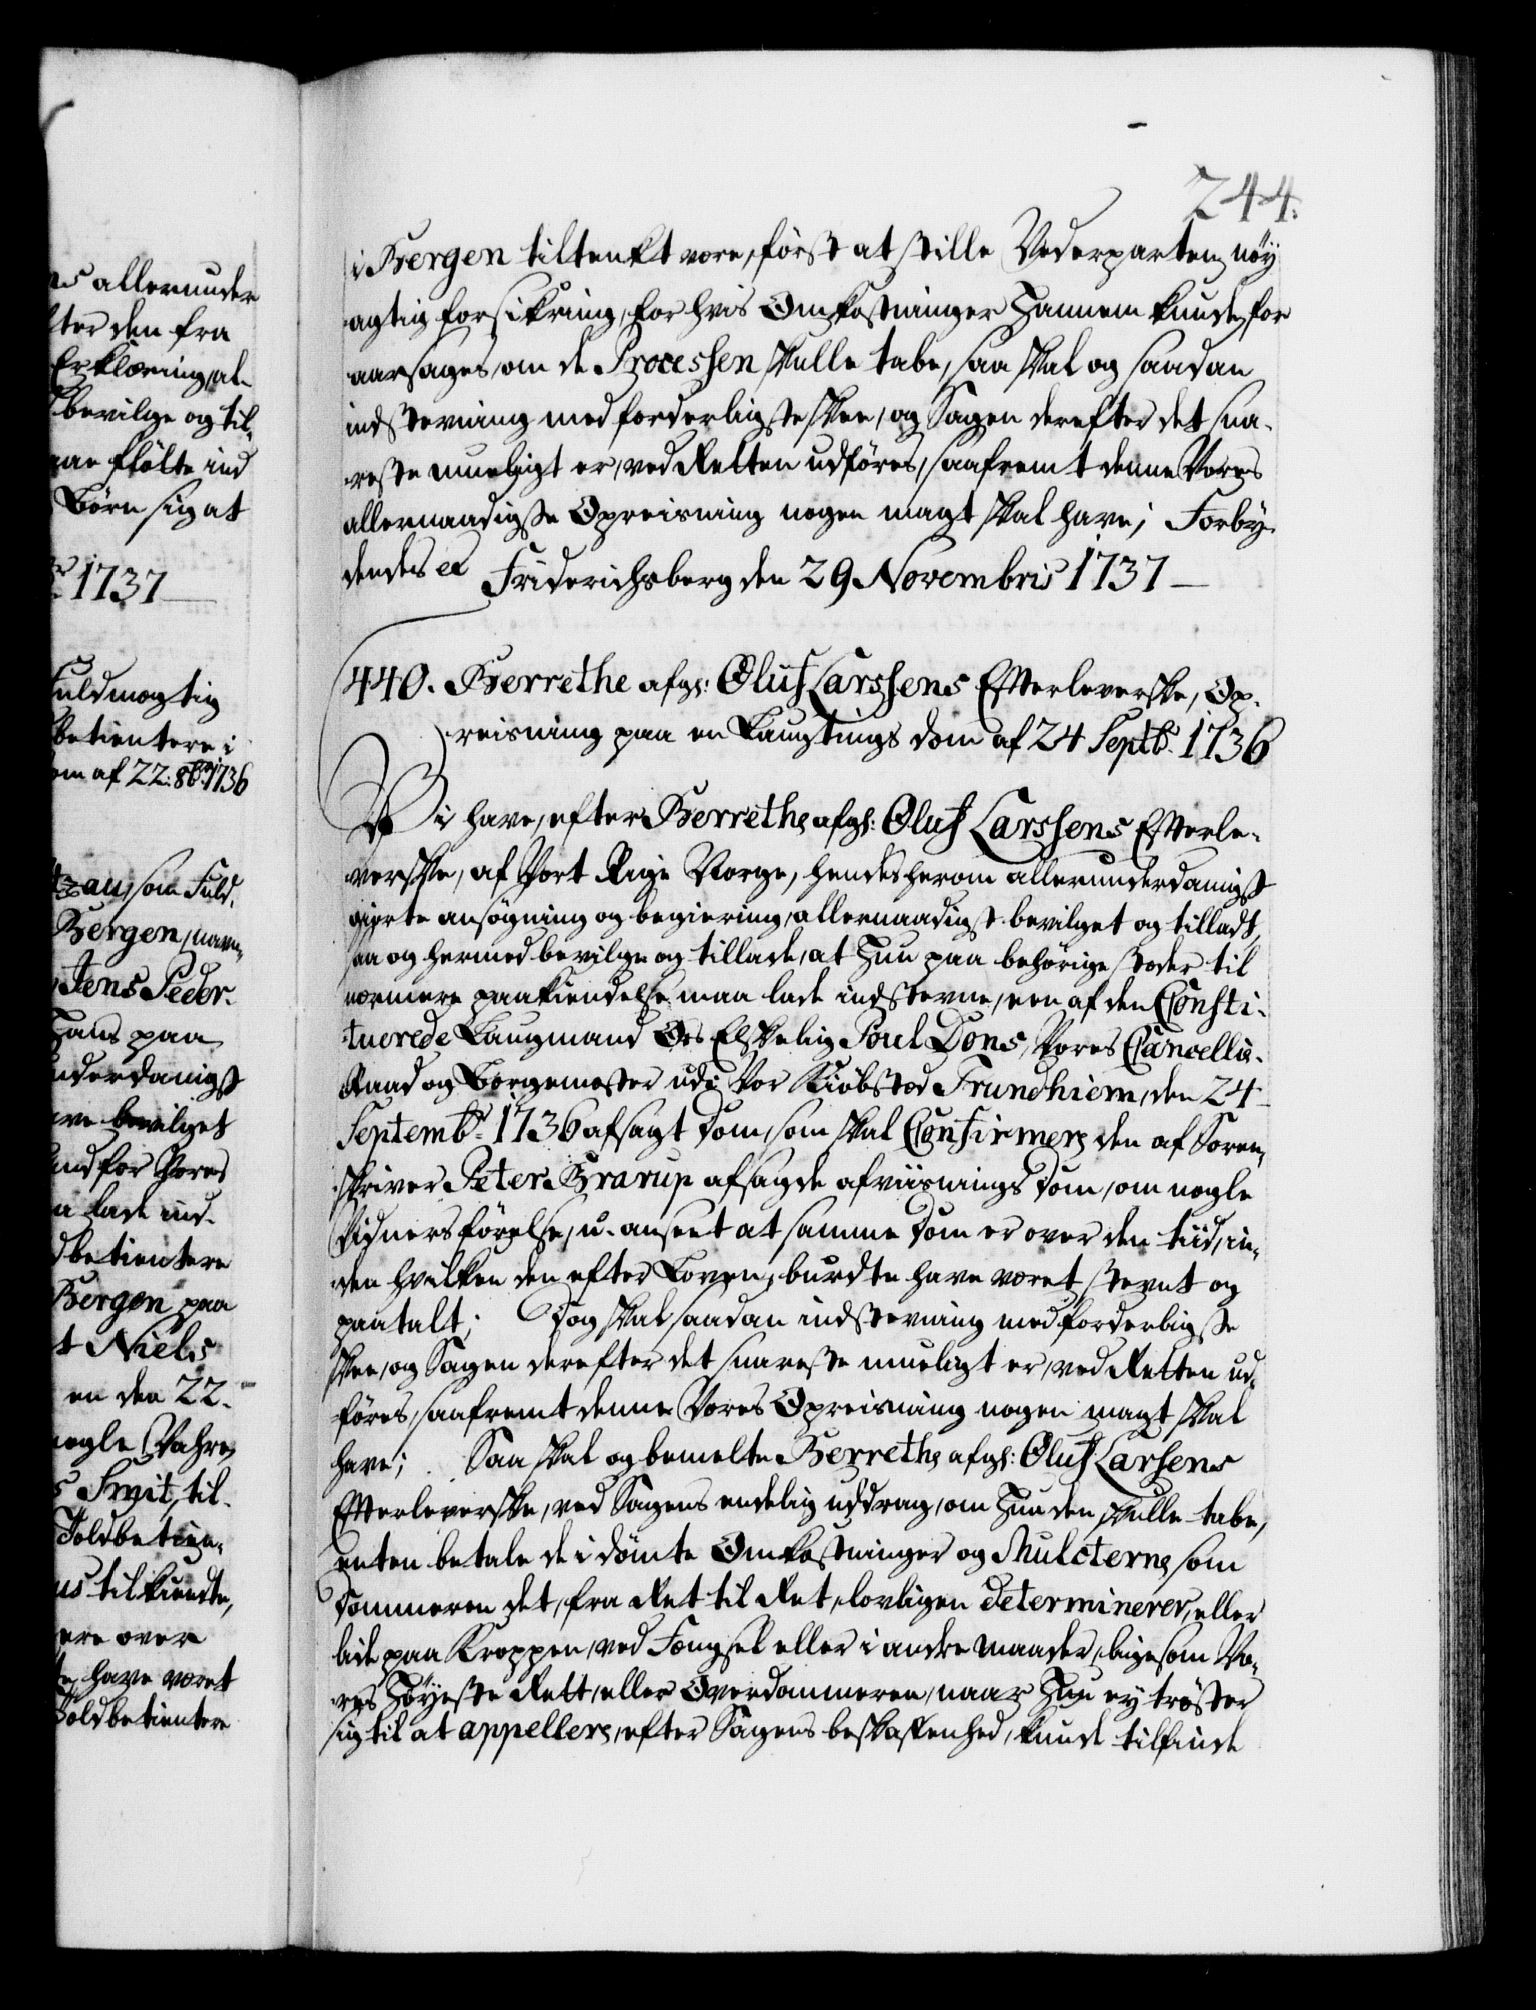 244.
i Bergen tiltenkt være, först at stille Vederparten nöy
agtig forsikring, for hvis Omkostninger Hannem kunde for
aarsages, om de Processen skulle tabe, saa skal og saadan
indstevning med forderligste skee, og Sagen derefter det sna-
reste mueligt er, ved Retten udföres, saafremt denne Vores
allernaadigste Opreisning nogen magt skal have; Forby-
dendes etc Friderichsberg den 29 Novembris 1737
440. Berrethe afg: Oluf Larssens Efterleverske, Op-
reisning paa en Laugtings dom af 24 Septb: 1736
Vi have, efter Berrethe afg: Oluf Larssens Efterle-
verske, af Vort Rige Norge, hendes herom allerunderdanigst
giorte ansögning og begiering, allernaadigst bevilget og tilladt,
saa og hermed bevilge og tillade, at Hun paa behörige stæder til
nærmere paakiendelse maa lade indstevne, een af den Consti-
tuerede Laugmand Os Elskelig Poul Dons, Vores Cancellie-
Raad og Borgemester udi Vor Kiöbsted Trundhiem, den 24
Septemb: 1736 afsagt Dom, som skal Confirmere den af Soren-
skriver Peter Brarup afsagde afviisnings Dom, om nogle
Vidners förelse, u-anseet at samme Dom er over den tiid, in-
den hvilken den efter Loven, burdte have været stevnt og
paatalt; Dog skal saadan indstevning med forderligste
skee, og Sagen derefter det snareste mueligt er, ved Retten ud-
föres, saafremt denne Vores Opreisning nogen magt skal
have; Saa skal og bemelte Berrethe afg: Oluf Larsens
Efterleverske, ved Sagens endelig uddrag, om Hun den skulle tabe,
enten betale de idömte Omkostninger og Mulcterne, som
Dommeren det, fra Ret til Ret, lovligen determinerer, eller
lide paa Kroppen, ved Fængsel eller i andre maader, ligesom Vo-
res Höyeste Rett, eller Overdommeren, naar Hun ey tröster
sig til at appellere, efter Sagens beskaffenhed, kunde tilfinde